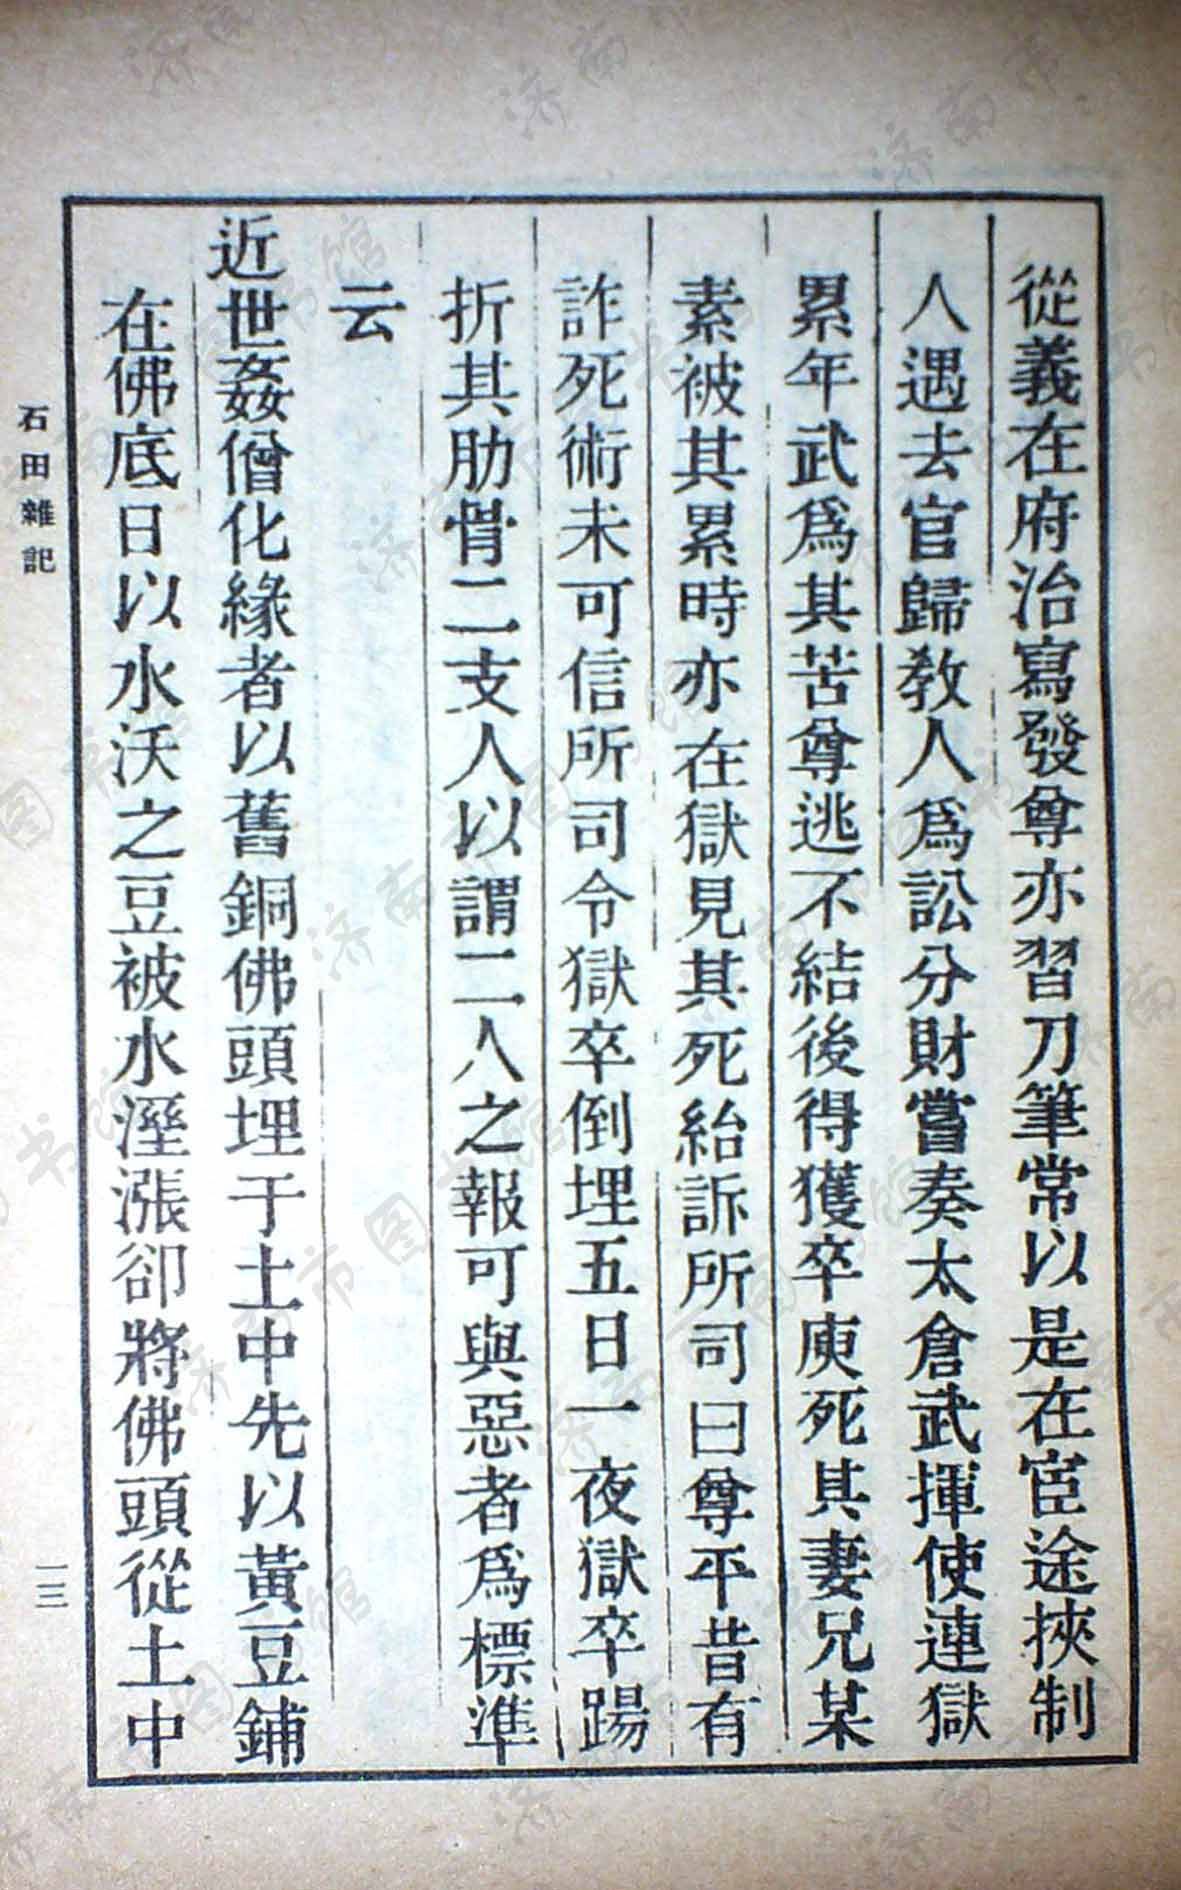 從義在府治寫發尊亦習刀筆常以是在宦途挾制
人遇去官歸教人爲訟分財嘗奏太倉武揮使連獄
累年武爲其苦尊逃不結後得獲卒庾死其妻兄某
素被其累時亦在獄見其死紿訴所司曰尊平昔有
詐死術未可信所司令獄卒倒埋五日一夜獄卒踢
折其肋骨二支人以謂二人之報可與惡者爲標準
云
近世姦僧化緣者以舊銅佛頭埋于土中先以黃豆鋪
在佛底日以水沃之豆被水溼漲卻將佛頭從土中
石田雜記
一三
济南市图书馆